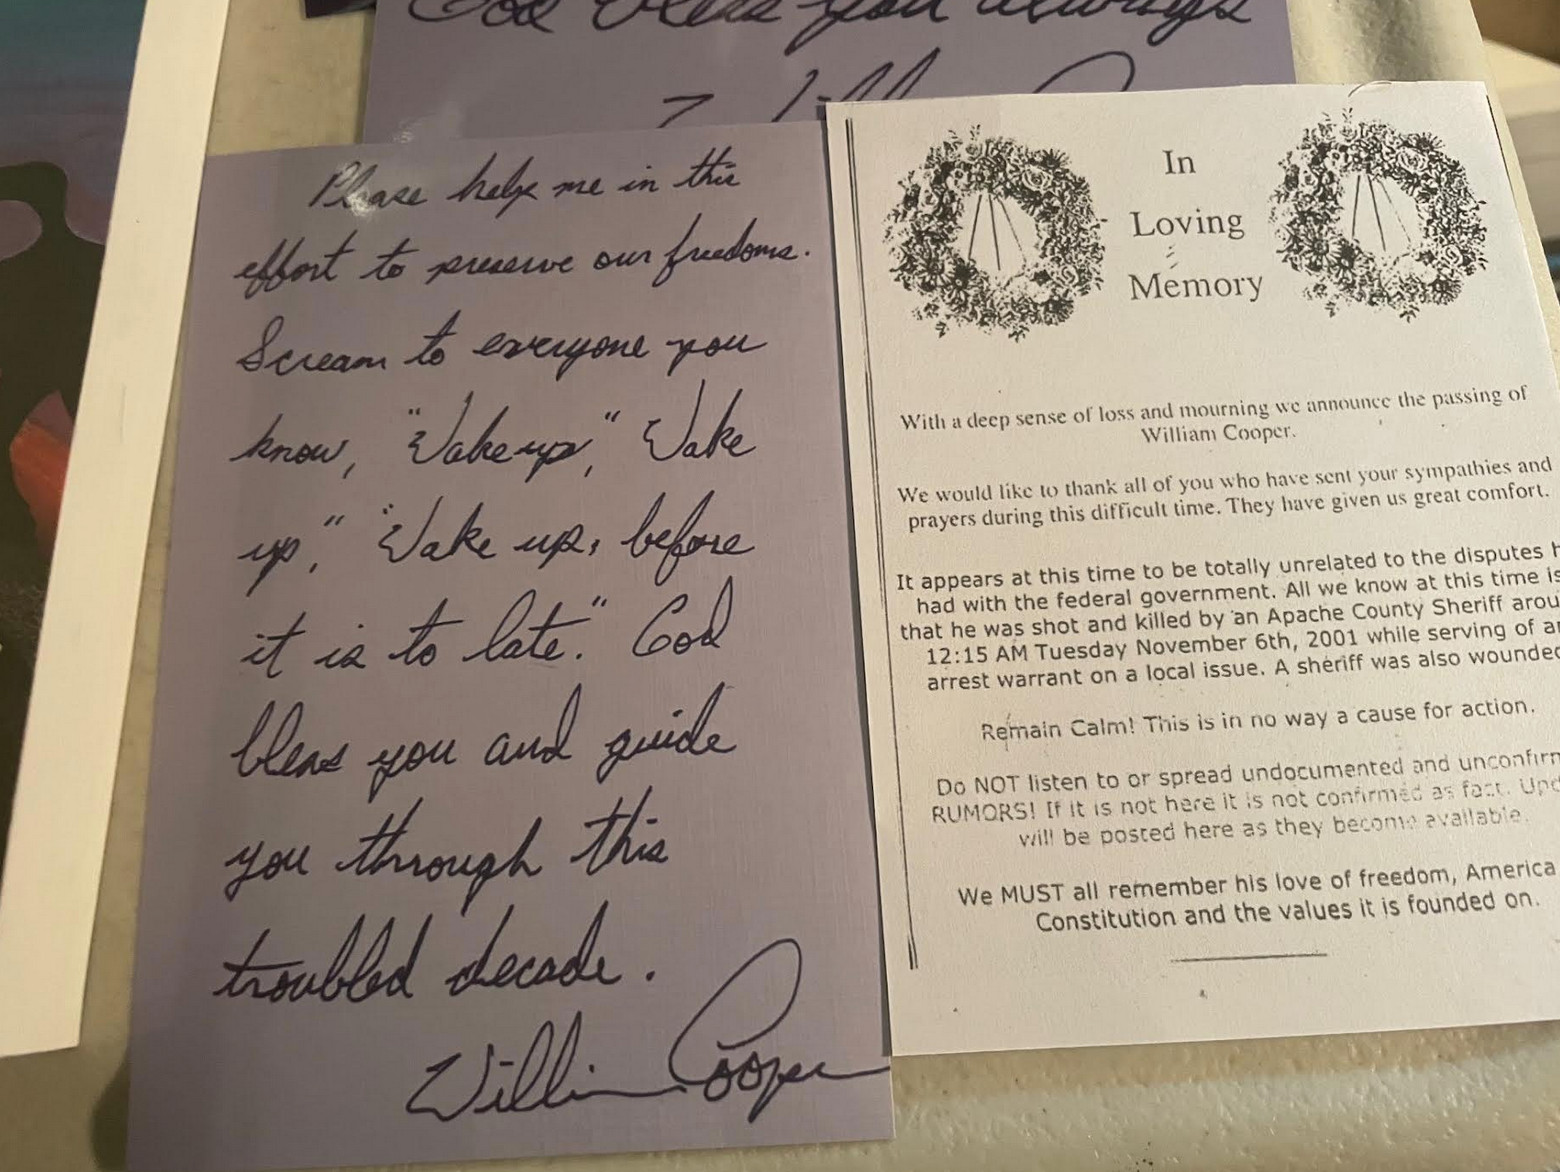 God bless you always
Please help me in this
effort to preserve our freedoms.
Scream to everyone you
know, "Wake up," Wake
up," "Wake up, before
it is to late." God
bless you and guide
you through this
troubled decade.
William Cooper
In
Loving
Memory
With a deep sense of loss and mourning we announce the passing of
William Cooper.
We would like to thank all of you who have sent your sympathies and
prayers during this difficult time. They have given us great comfort.
It appears at this time to be totally unrelated to the disputes
had with the federal government. All we know at this time is
that he was shot and killed by an Apache County Sheriff
12:15 AM Tuesday November 6th, 2001 while serving of
arrest warrant on a local issue. A sheriff was also wounded
Remain Calm! This is in no way a cause for action.
Do NOT listen to or spread undocumented and
RUMORS! If it is not here it is not confirmed as fact.
will be posted here as they become available.
We MUST all remember his love of freedom, America
Constitution and the values it is founded on.